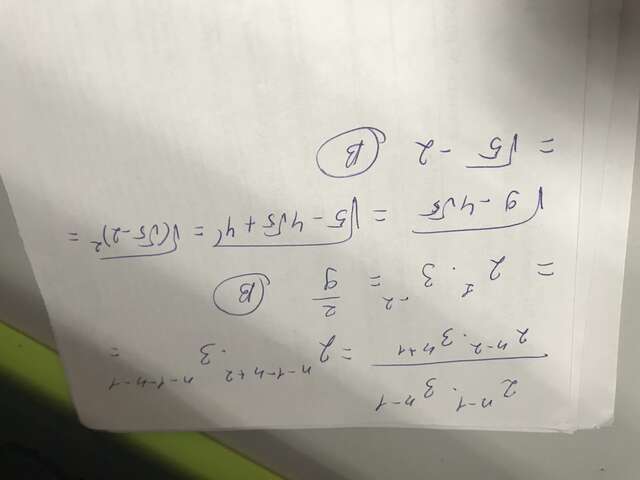 2ⁿ⁻¹ · 3ⁿ⁻¹ / 2ⁿ⁻² · 3ⁿ⁺¹ = 2ⁿ⁻¹⁻ⁿ⁺² · 3ⁿ⁻¹⁻ⁿ⁻¹ =
= 2¹ · 3⁻² = 2/9 B
√(9 - 4√5) = √(5 - 4√5 + 4) = √(√5 - 2)² =
= √5 - 2 B